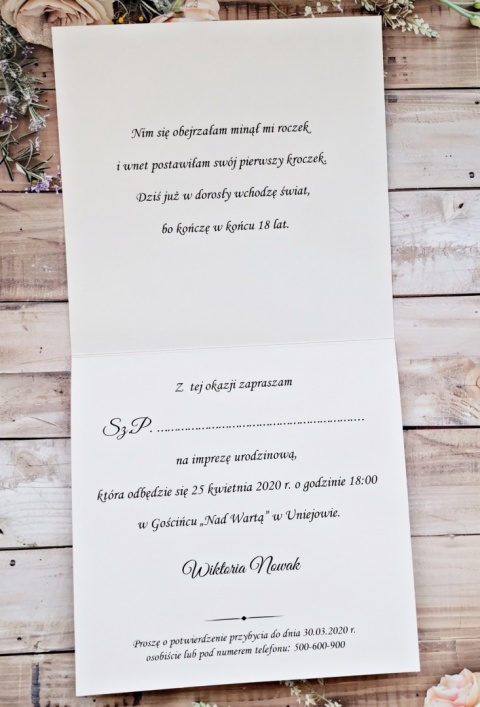 Nim się obejrzałam minął mi roczek
i wnet postawiłam swój pierwszy kroczek.
Dziś już w dorosły wchodzę świat,
bo kończę w końcu 18 lat.
Z tej okazji zapraszam
Sz.P. ............................................................
na imprezę urodzinową,
która odbędzie się 25 kwietnia 2020 r. o godzinie 18:00
w Gościńcu „Nad Wartą” w Uniejowie.
Wiktoria Nowak
Proszę o potwierdzenie przybycia do dnia 30.03.2020 r.
osobiście lub pod numerem telefonu: 500-600-900